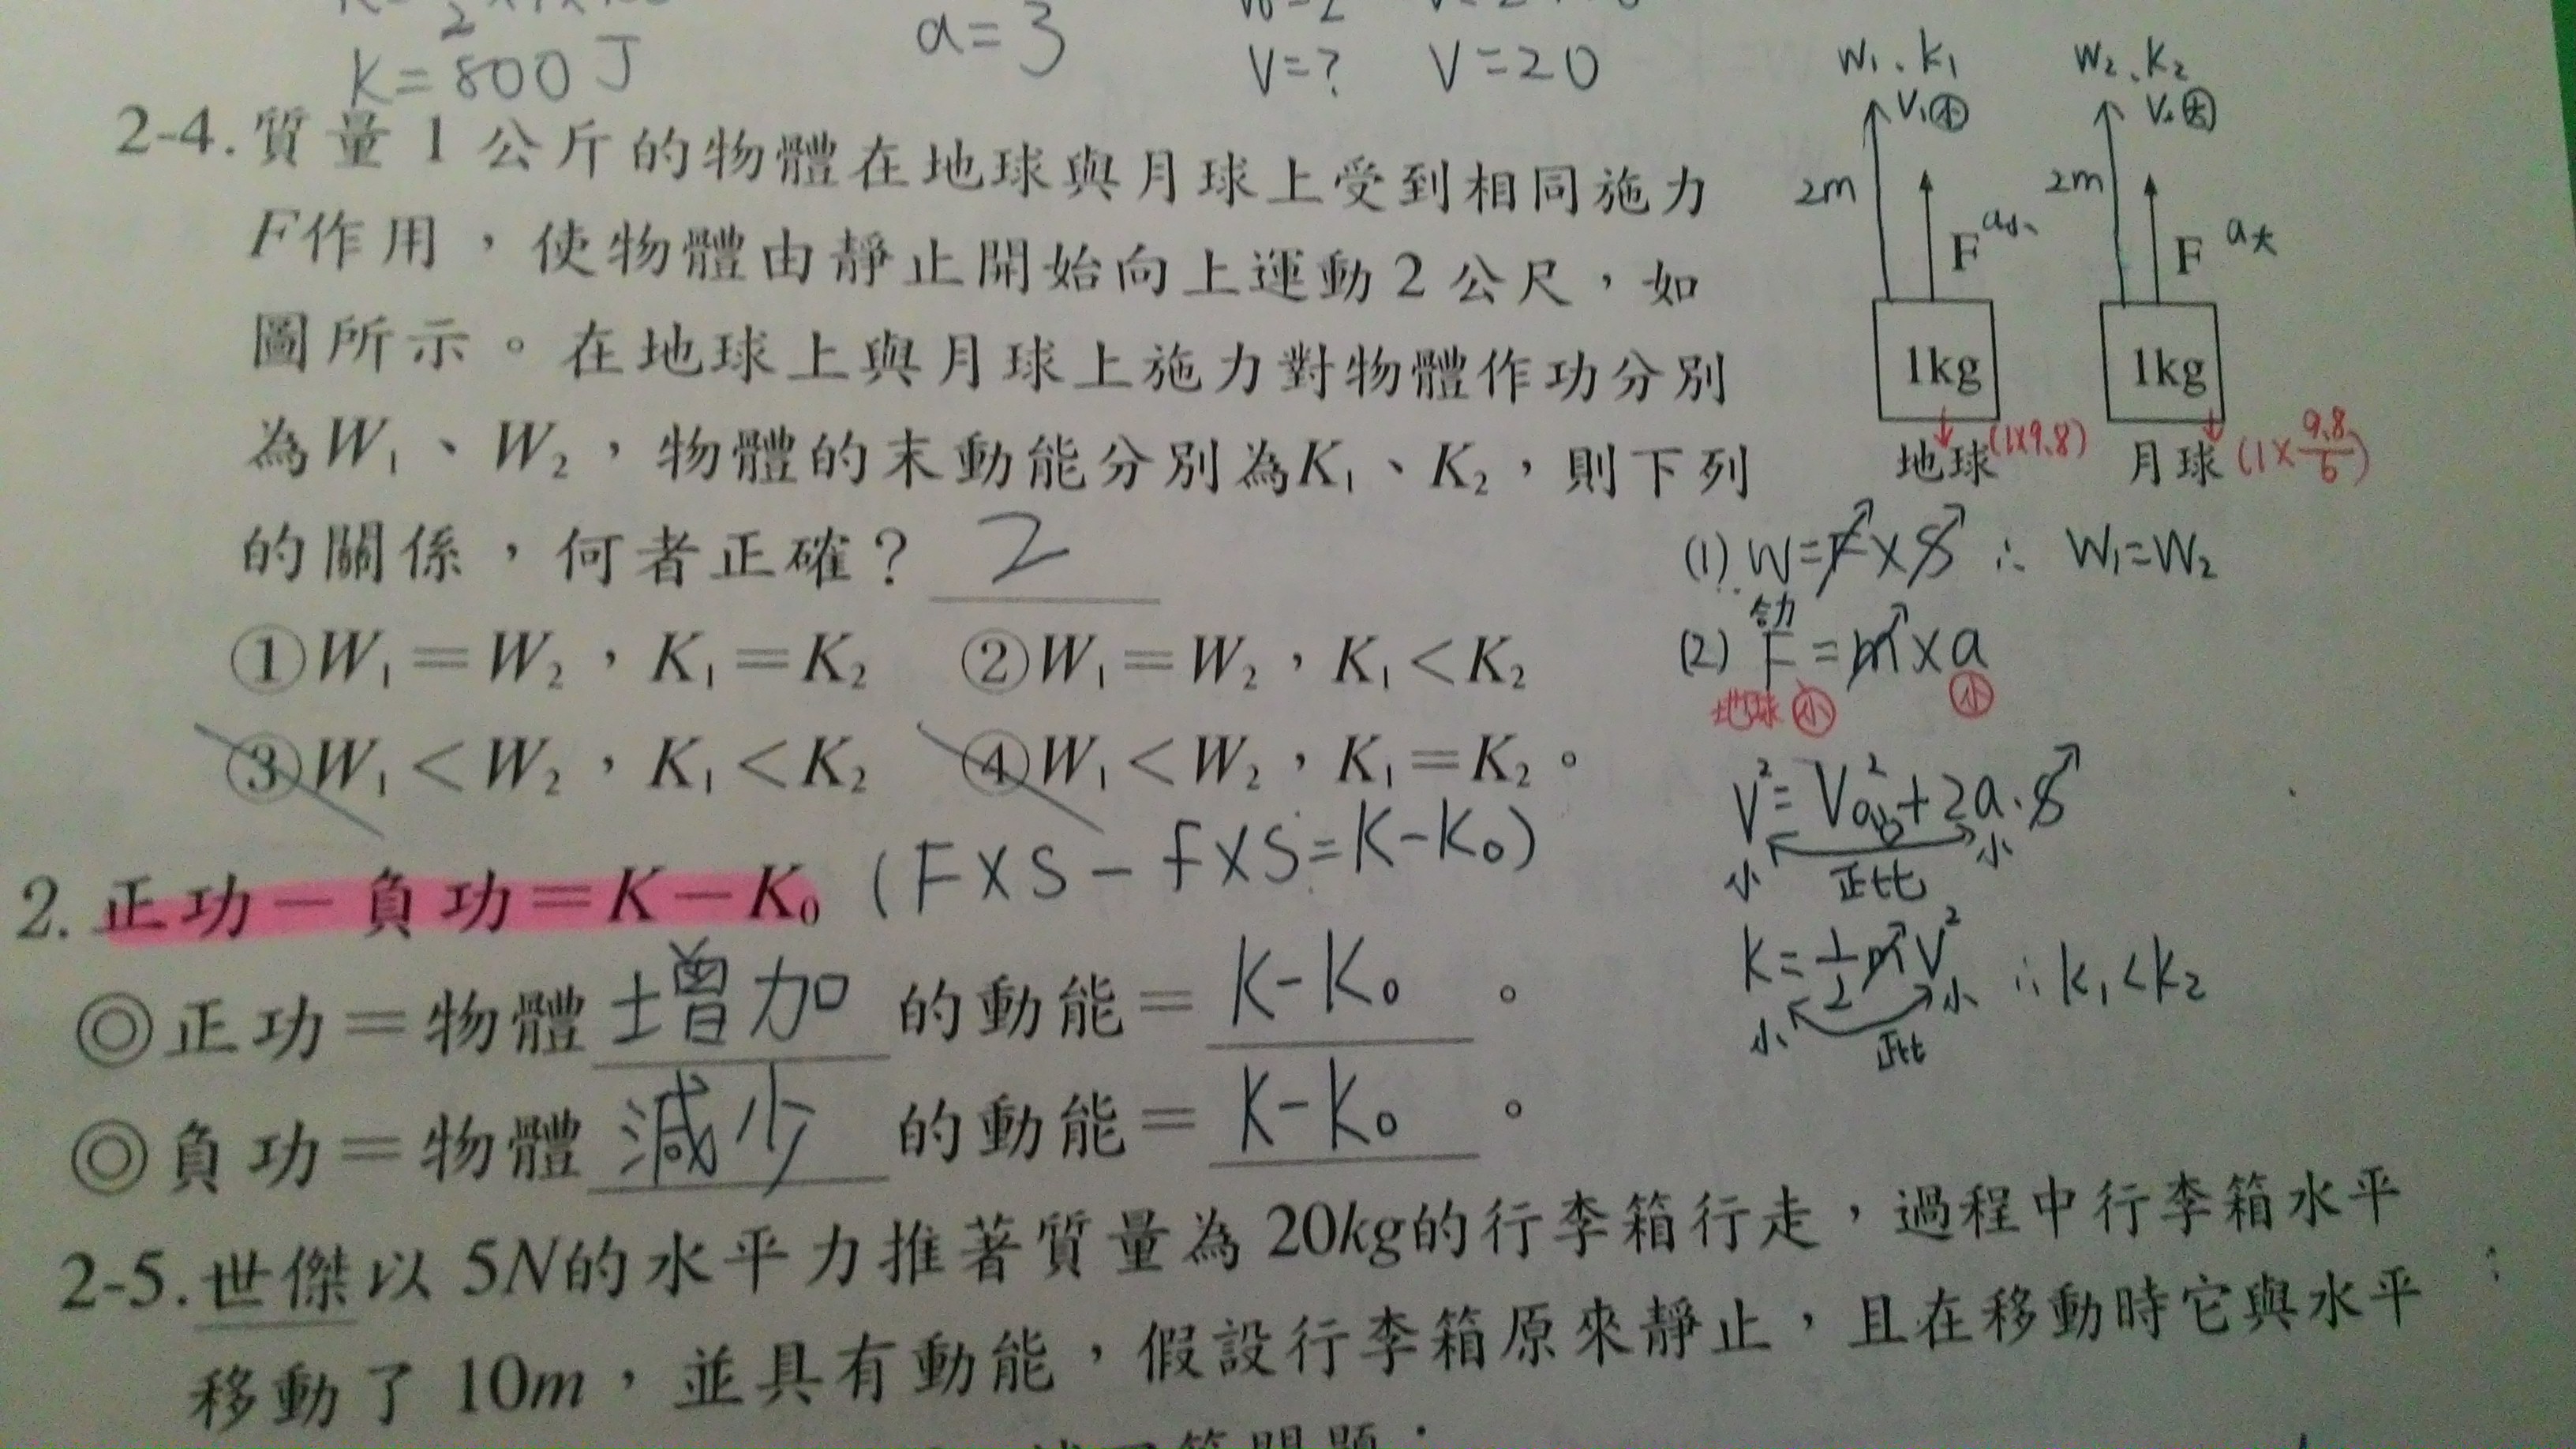 K=800J
a=3
V=?
V=20
2-4.質量1公斤的物體在地球與月球上受到相同施力
F作用，使物體由靜止開始向上運動2公尺，如
圖所示。在地球上與月球上施力對物體作功分別
為W₁、W₂，物體的末動能分別為K₁、K₂，則下列
的關係，何者正確？ 2
①W₁＝W₂，K₁＝K₂ ②W₁＝W₂，K₁＜K₂
③W₁＜W₂，K₁＜K₂ ④W₁＜W₂，K₁＝K₂。
W₁、k₁
V₁小
2m
F
a小
1kg
地球
(1×9.8)
W₂、k₂
V₂大
2m
F
a大
1kg
月球
(1×9.8/6)
(1) W=F×S ∴ W₁=W₂
合力
(2) F=m×a
地球 小 小
V²=V₀²+2a·S
小 正比 小
K=1/2mV² ∴k₁<k₂
小 正比 小
2.正功－負功＝K－K₀ (F×S－f×S=K-K₀)
◎正功＝物體增加的動能＝K-K₀。
◎負功＝物體減少的動能＝K-K₀。
2-5.世傑以5N的水平力推著質量為20kg的行李箱行走，過程中行李箱水平
移動了10m，並具有動能，假設行李箱原來靜止，且在移動時它與水平